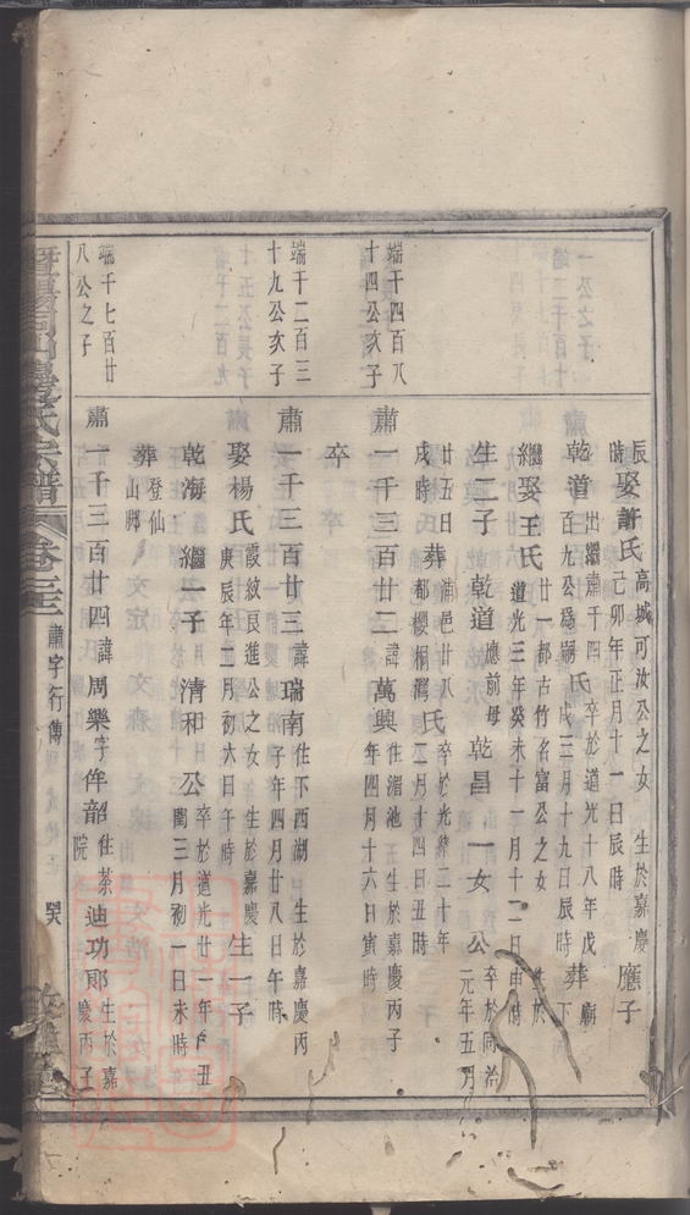 辰時娶許氏高城可汝公之女生於嘉慶己卯年正月十一日辰時應子
乾道出繼肅千四百九公爲嗣氏卒於道光十八年戊戌三月十九日辰時葬下廟
繼娶王氏廿一都古竹名富公之女生於道光三年癸未十一月十二日申時
生二子乾道應前母乾昌一女公卒於同治元年五月
廿五日戌時葬浦邑廿八都櫻桐灣氏卒於光緒二十年二月十四日丑時
端千四百八十四公次子
肅一千三百廿二諱萬興住湄池五生於嘉慶丙子年四月十六日寅時
卒
端千二百三十九公次子
肅一千三百廿三諱瑞南住下西湖生於嘉慶丙子年四月廿八日午時
娶楊氏霞紋艮進公之女生於嘉慶庚辰年二月初六日午時生一子
乾海繼一子清和公卒於道光廿一年丑閏三月初一日未時
葬登仙山脚
端千七百廿八公之子
肅一千三百廿四諱周樂字侔韶住茶院迪功郎生於嘉慶丙子
暨陽同山邊氏宗譜卷三 肅字行傳